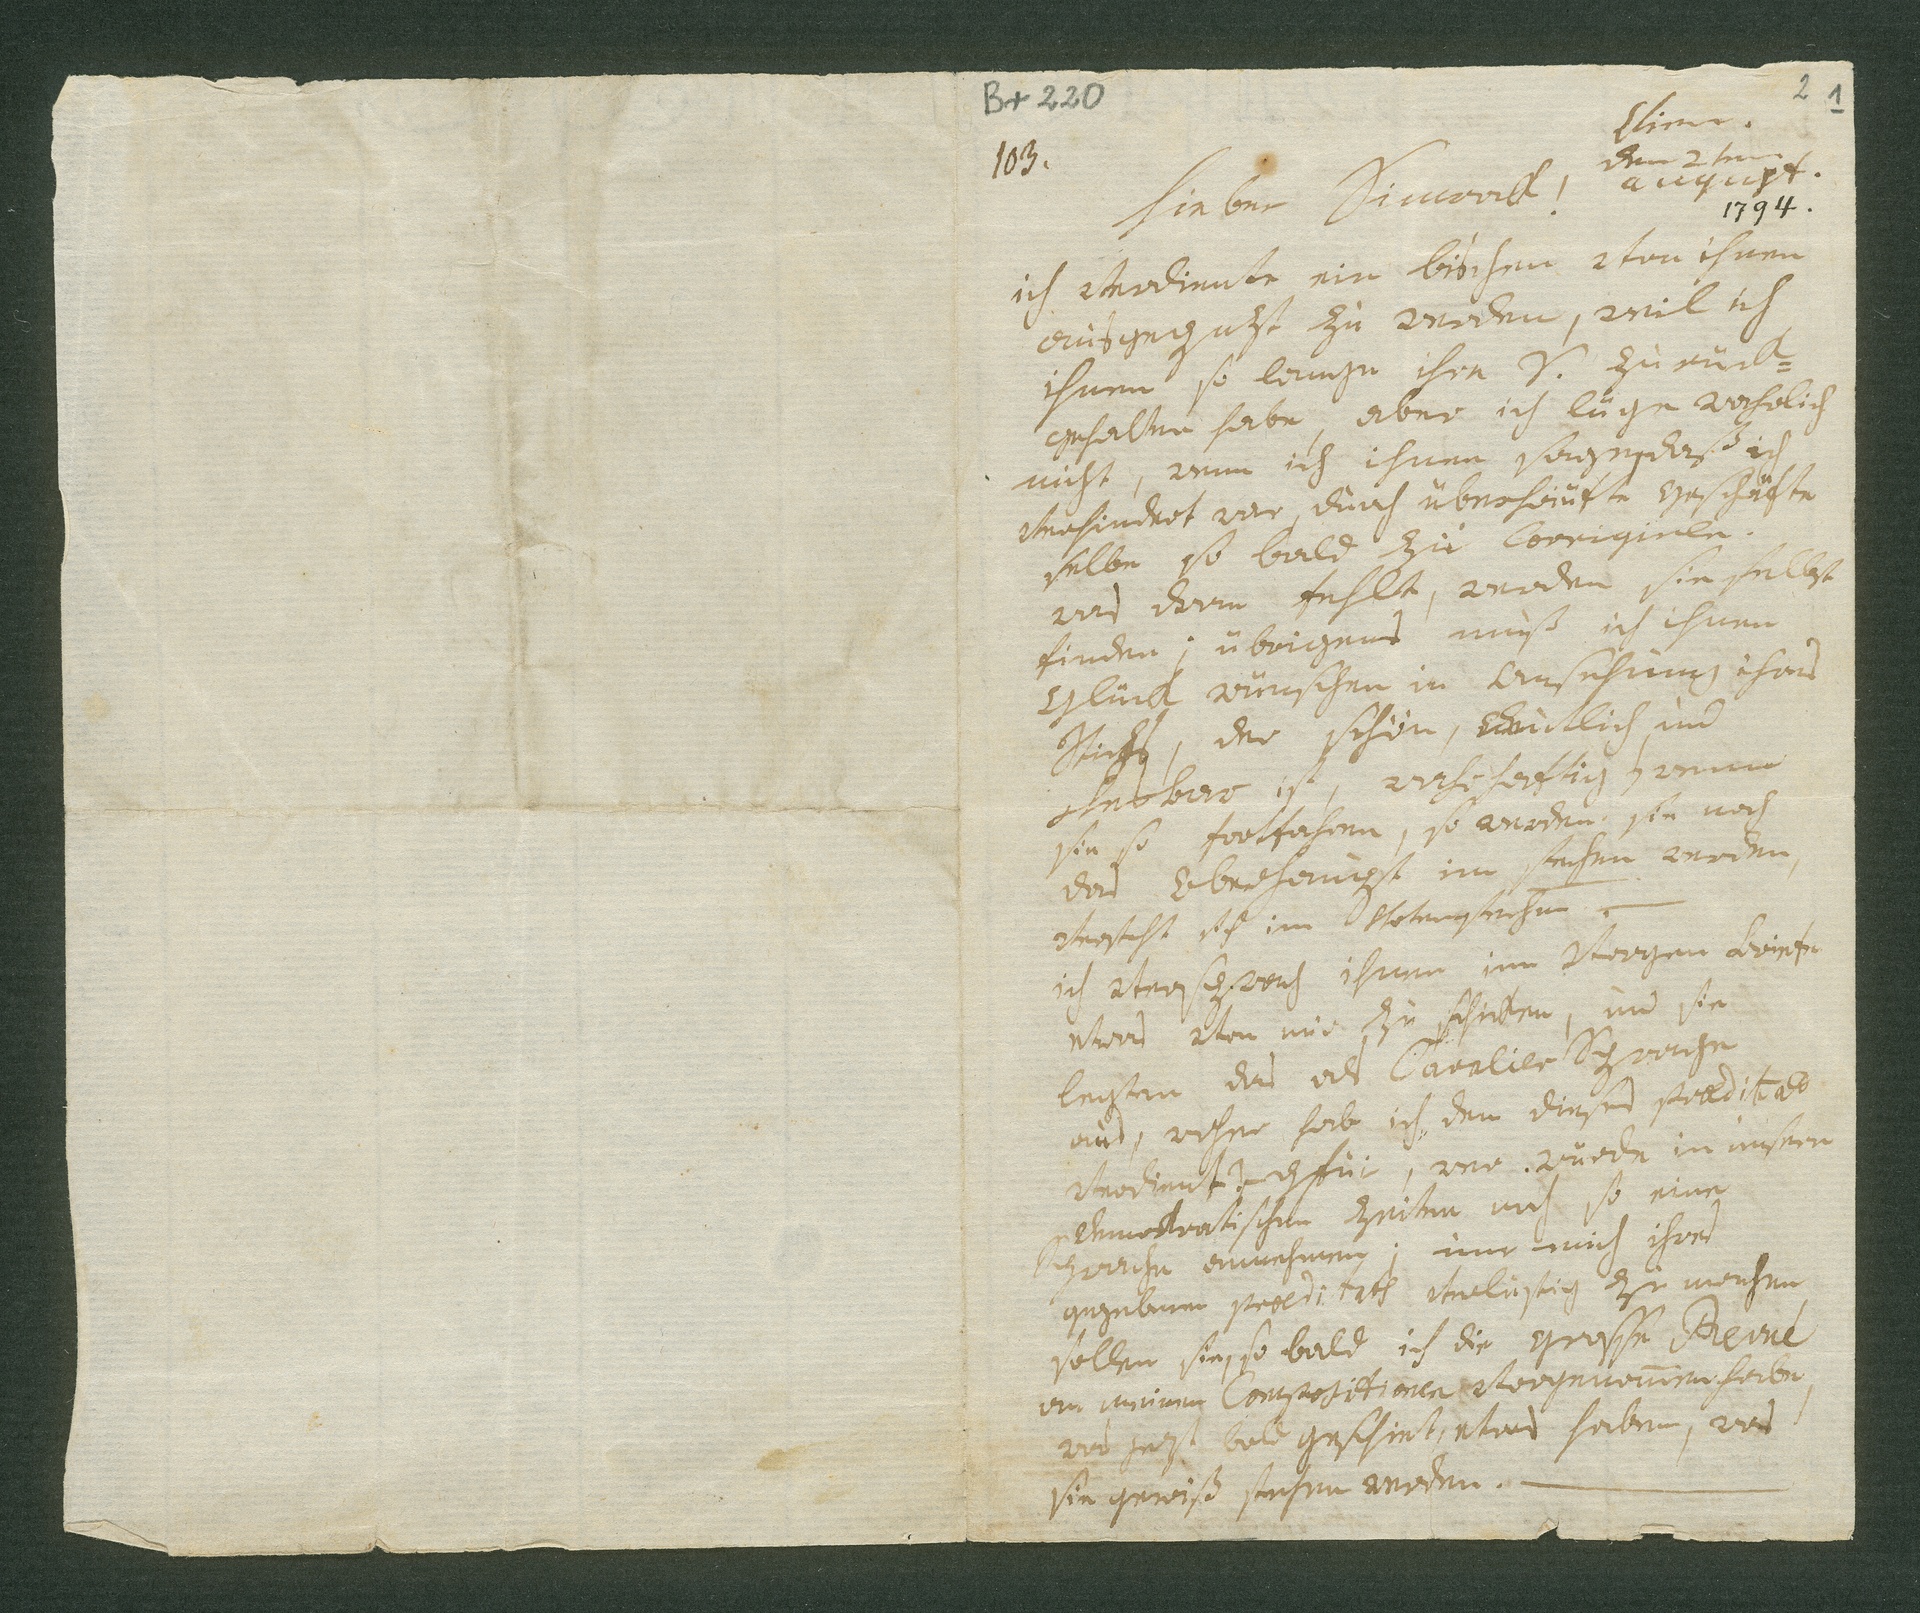 Br 220
2 1
103.
Wien.
den 2ten
august.
1794.
Lieber Simrock!
ich verdiente ein bischen von ihnen
ausgepuzt zu werden, weil ich
ihnen so lange ihre V. zurück=
gehalten habe, aber ich lüge wahrlich
nicht, wenn ich ihnen sage, daß ich
verhindert war, durch überhäufte geschäfte
selbe so bald zu Corrigieren.
was daran fehlt, werden sie selbst
finden; übrigens muß ich ihnen
glück wünschen in ansehung ihres
Stichs, der schön, deutlich und
lesbar ist, wahrhaftig, wenn
sie so fortfahren, so werden sie noch
das oberhaupt im stechen werden,
versteht sich im Notenstechen —
ich versprach ihnen im vorigen briefe
etwas von mir zu schicken, und sie
legten das als Cavalier Sprache
aus, woher hab ich den dieses praedicat
verdient? – pfui, wer würde in unsern
demokratischen Zeiten noch so eine
Sprache annehmen; um mich ihres
gegebenen praedikats verlustig zu machen
sollen sie, so bald ich die grosse Revue
an meinen Compositionen vorgenommen habe,
was jezt bald geschieht, etwas haben, was
sie gewiß stechen werden. —